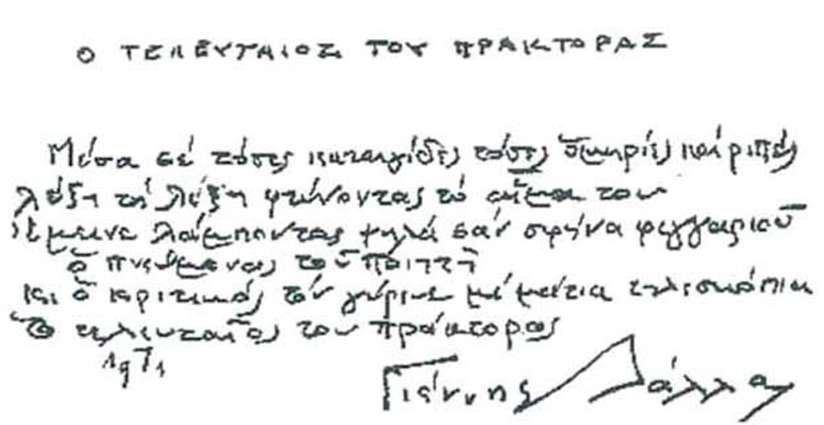 Ο ΤΕΛΕΥΤΑΙΟΣ ΤΟΥ ΠΡΑΚΤΟΡΑΣ
Μέσα σέ τόσες καταιγίδες τόσες ὁμηρίες καί ριπές
λέξη τή λέξη φτύνοντας τό αἷμα του
ἔμεινε λάμποντας ψηλά σάν σφήνα φεγγαριοῦ
ὁ πνεύμονας τοῦ ποιητῆ
Κι ὁ κριτικός τόν μέ μάτια τηλεσκόπια
Ὁ τελευταῖος του πράκτορας
1971
Γιάννης Δάλλας